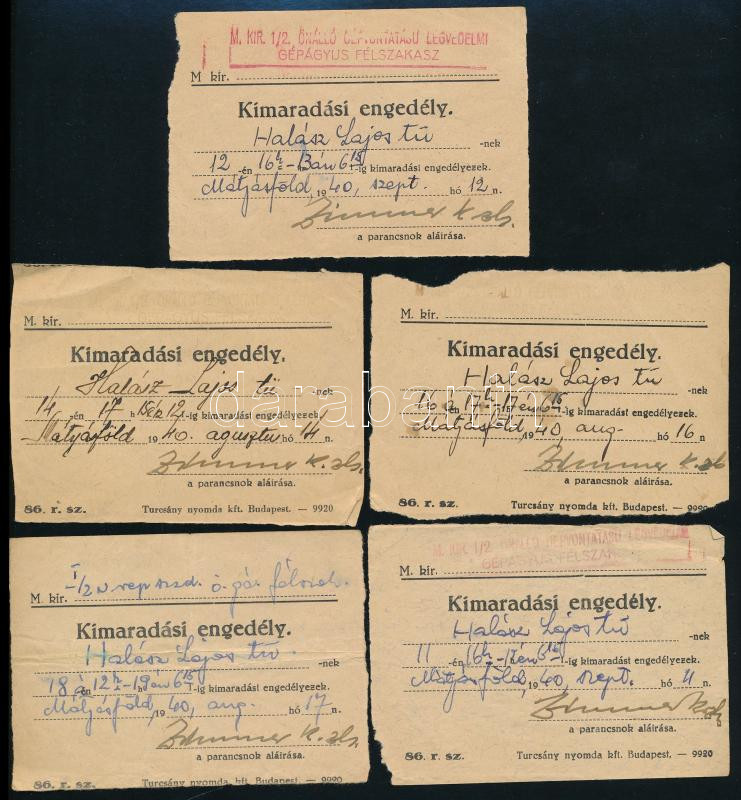 M. KIR. 1/2. ÖNÁLLÓ GÉPVONTATÁSÚ LÉGVÉDELMI
GÉPÁGYUS FÉLSZAKASZ
M kir.
Kimaradási engedély.
Halász Lajos tű -nek
12 -én 16h-13án 6 15-ig kimaradási engedélyezek.
Mátyásföld, 1940, szept. hó 12 n.
Zimmer K. zls.
a parancsnok aláírása.
86. r. sz.
M. kir.
Kimaradási engedély.
Halász Lajos tű -nek
14 -én 17 h 15én 12 -ig kimaradási engedélyezek.
Mátyásföld 1940. agusztus hó 14 n.
Zimmer K. zls.
a parancsnok aláírása.
86. r. sz. Turcsány nyomda kft. Budapest. — 9920
M. kir.
Kimaradási engedély.
Halász Lajos tű -nek
16 á én 17h-17én 6 15-ig kimaradási engedélyezek.
Mátyásföld, 1940 aug. hó 16 n.
Zimmer K. zls
a parancsnok aláírása.
86. r. sz. Turcsány nyomda kft. Budapest. — 9920
I/2 ö. gá. félszak.
M. kir.
Kimaradási engedély.
Halász Lajos tű. -nek
18 á én 12h-19én 6 15-ig kimaradási engedélyezek.
Mátyásföld, 1940, aug. hó 17 n.
Zimmer K. zls.
a parancsnok aláírása.
86. r. sz. Turcsány nyomda kft. Budapest. — 9920
M. KIR. 1/2. ÖNÁLLÓ GÉPVONTATÁSÚ LÉGVÉDELMI
GÉPÁGYUS FÉLSZAK
M. kir.
Kimaradási engedély.
Halász Lajos tű -nek
11 -én 16h-12én 6 15-ig kimaradási engedélyezek.
Mátyásföld, 1940, szept. hó 11 n.
Zimmer K. zls
a parancsnok aláírása.
86. r. sz. Turcsány nyomda kft. Budapest. — 9920
darabanth